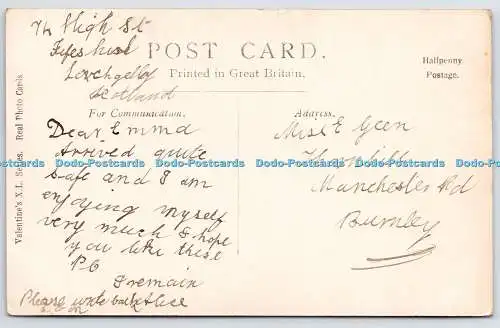 74 High St
Fifeshire
Lochgelly
Scotland
POST CARD.
Printed in Great Britain.
Halfpenny
Postage.
For Communication.
Address.
Valentine's X.L. Series. Real Photo Cards
Dear Emma
Arrived quite
safe and I am
enjoying myself
very much I hope
you like these
PC
I remain
Alice
Please write back
soon
Miss E Geen
Manchester Rd
Burnley
Dodo-Postcards Dodo-Postcards Dodo-Postcards Dodo-Postcards Dodo-Postcards
Dodo-Postcards Dodo-Postcards Dodo-Postcards Dodo-Postcards Dodo-Postcards